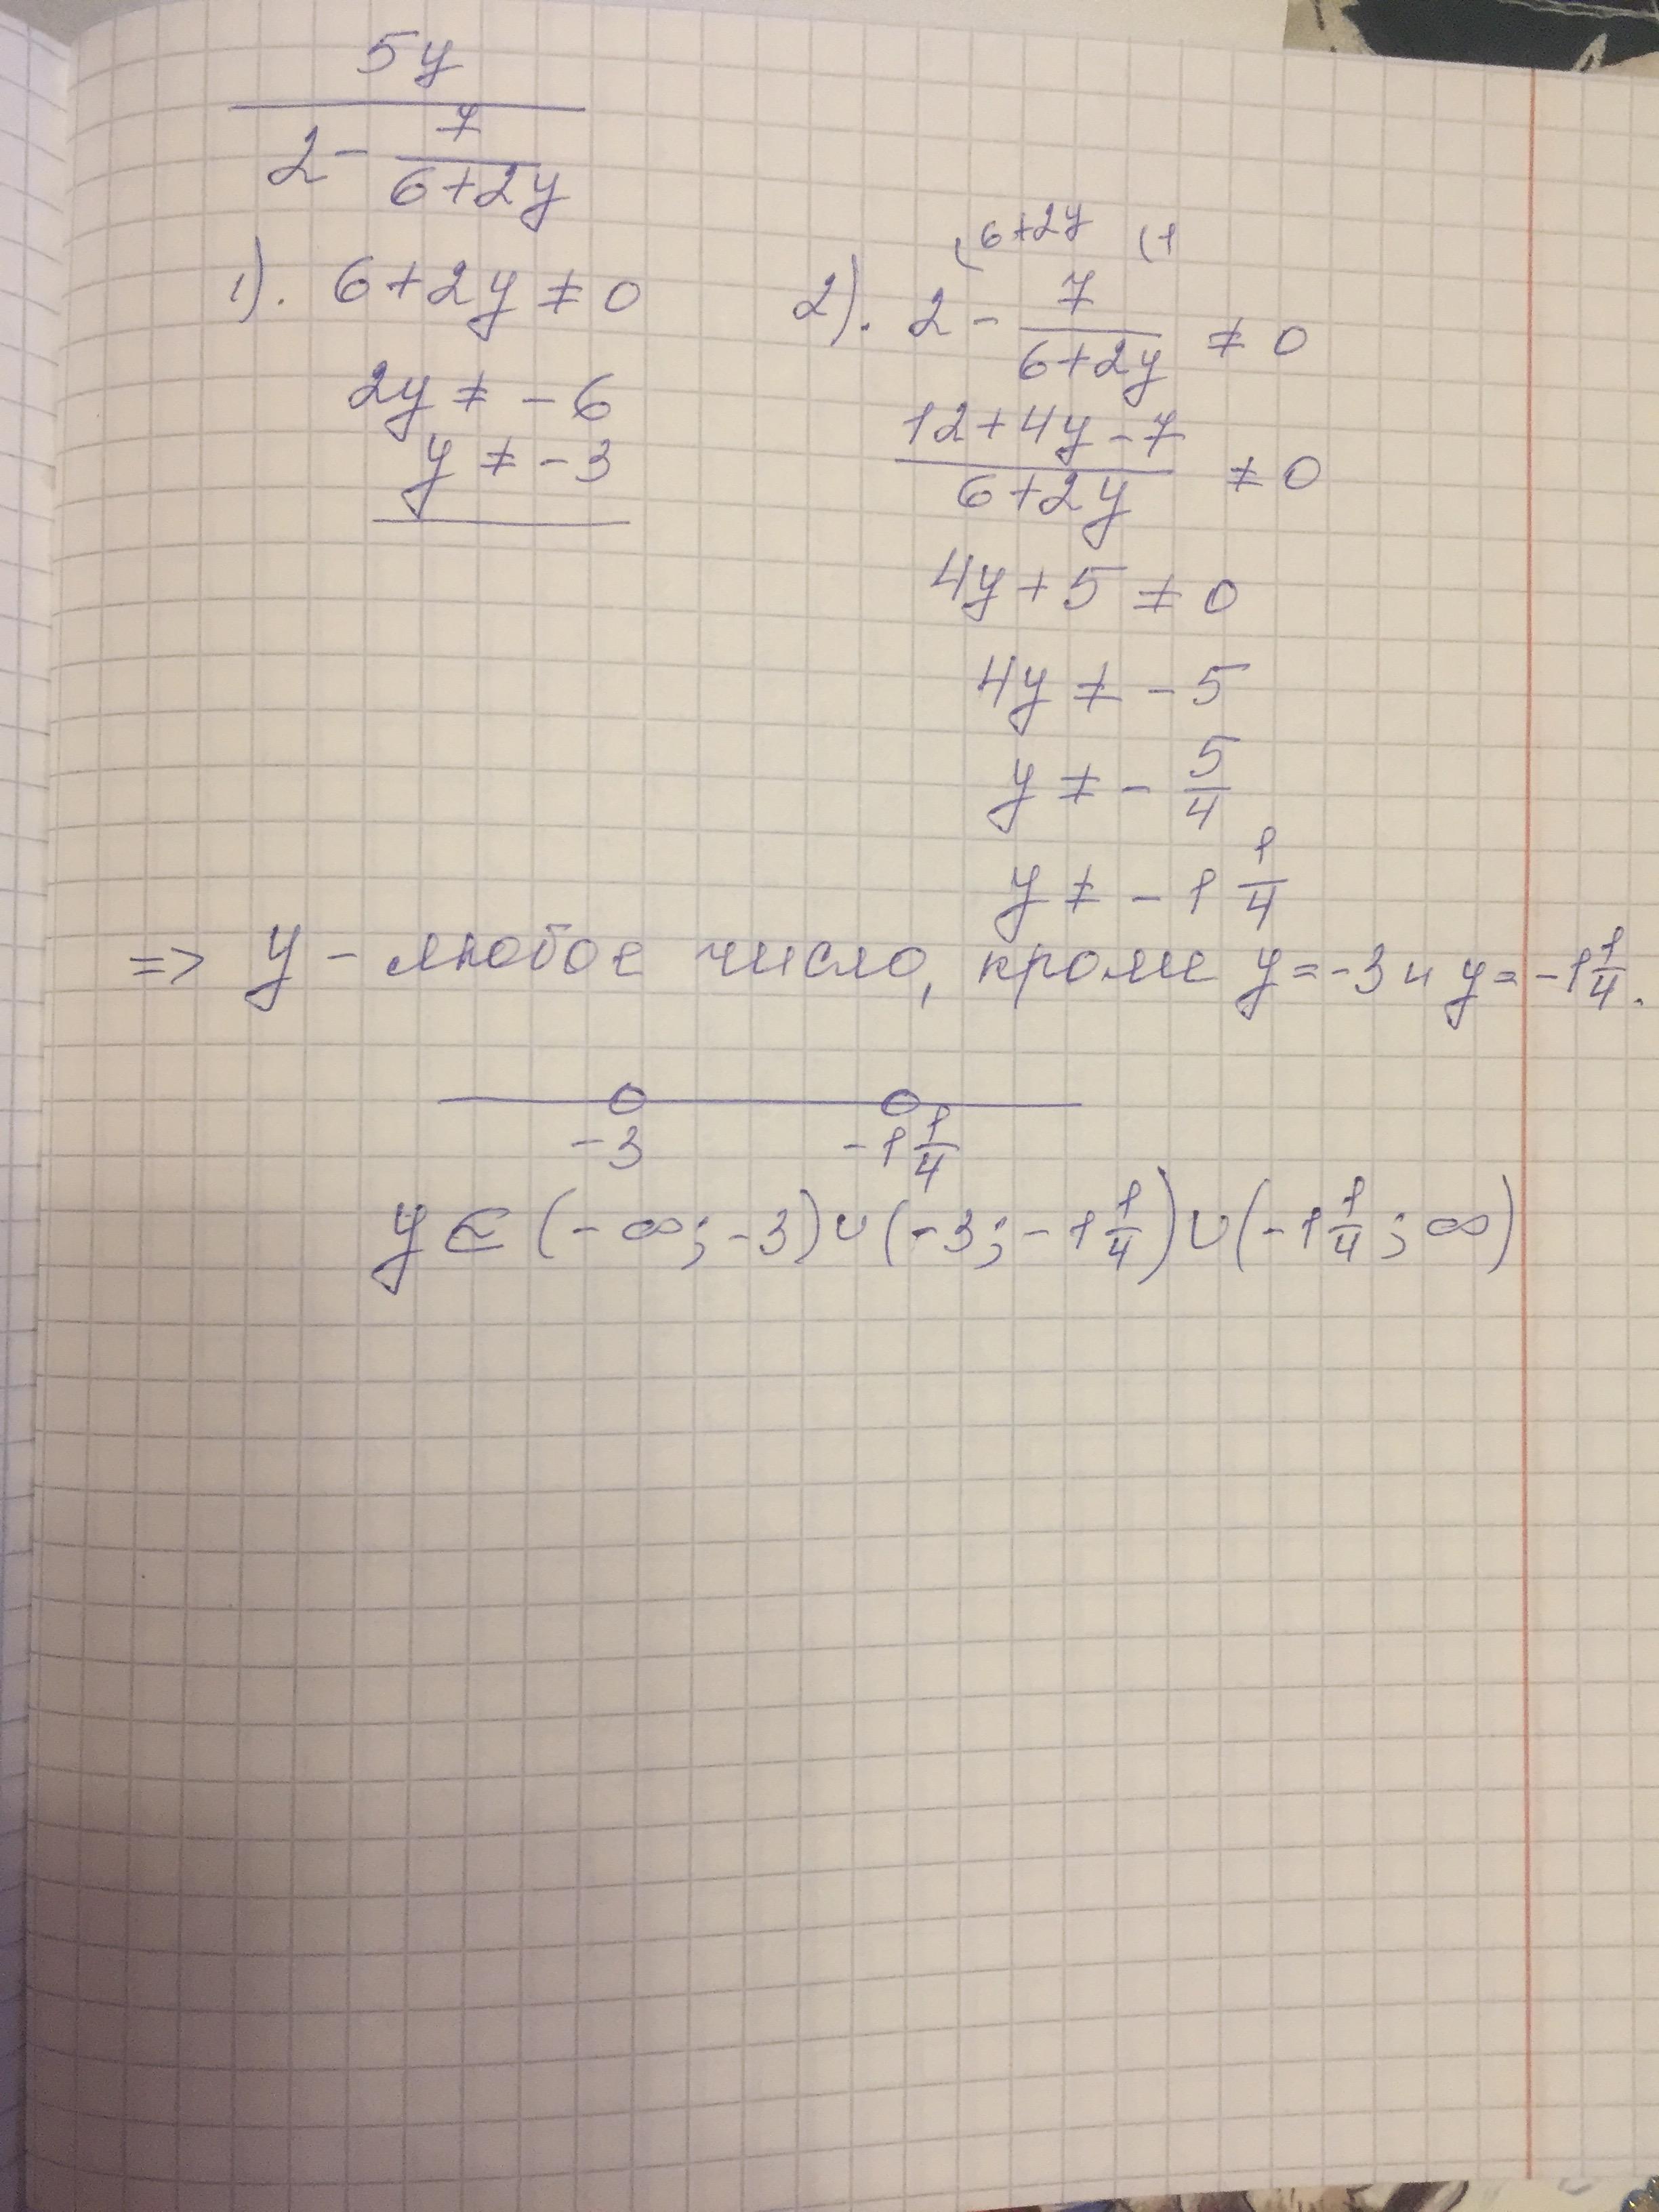 5y
2 - 7
6+2y
1). 6+2y ≠ 0
2y ≠ -6
y ≠ -3
(6+2y (1
2). 2 - 7/(6+2y) ≠ 0
(12+4y-7)/(6+2y) ≠ 0
4y+5 ≠ 0
4y ≠ -5
y ≠ - 5/4
y ≠ -1 1/4
=> y - любое число, кроме y=-3 и y=-1 1/4.
-3 -1 1/4
y ∈ (-∞; -3) ∪ (-3; -1 1/4) ∪ (-1 1/4; ∞)